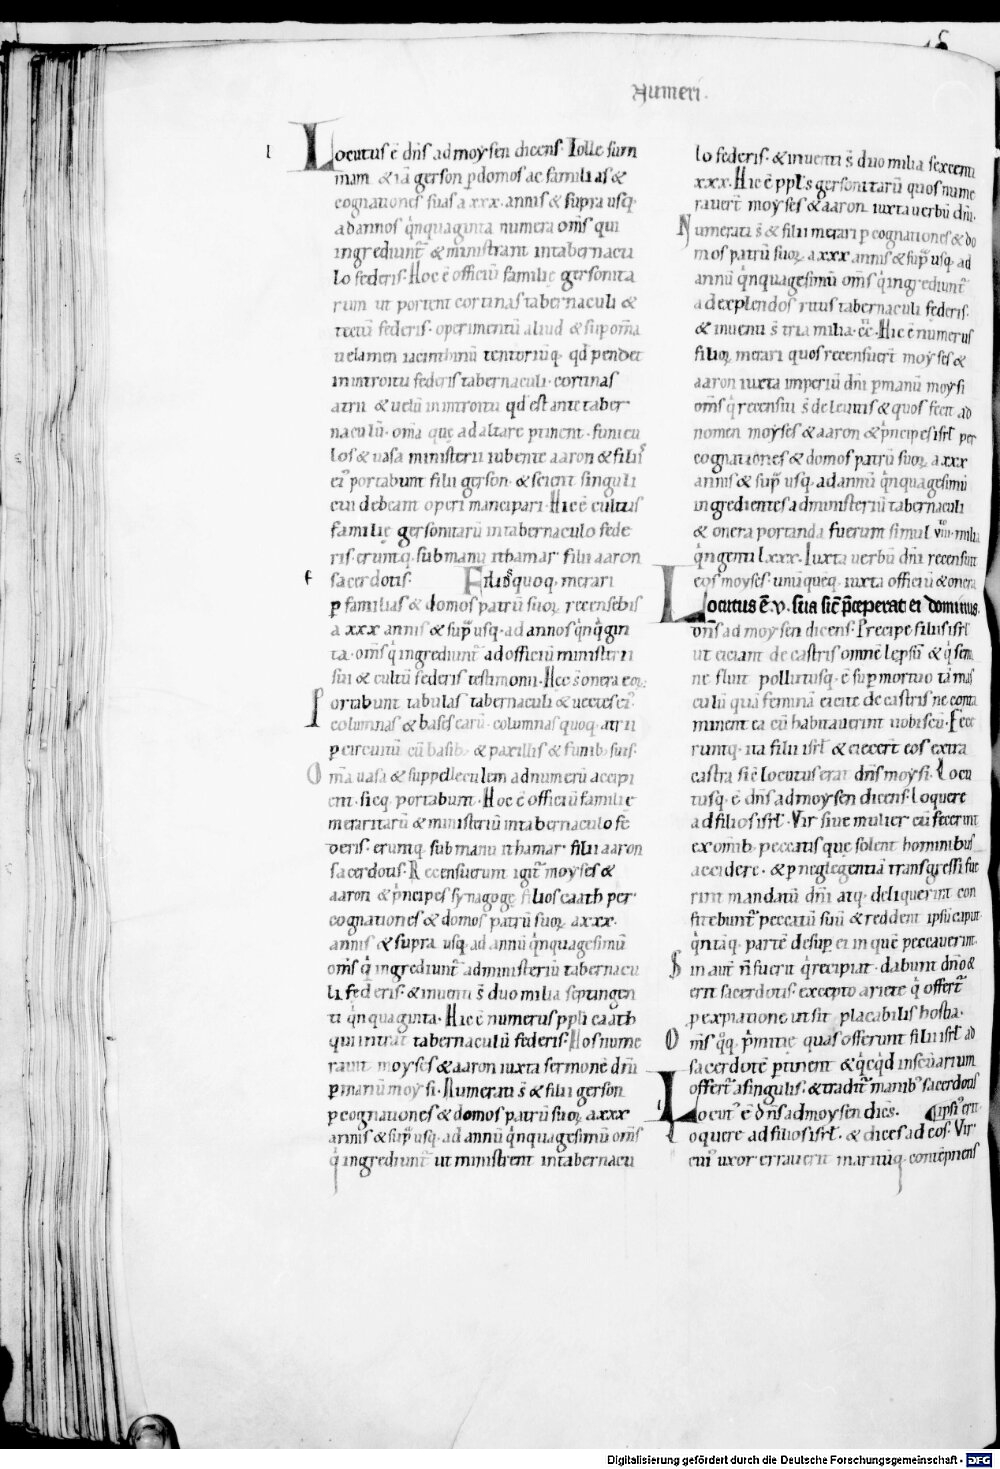 Numeri.
Locutus ē dn̄s ad moysen dicens. Tolle sum
mam & iā gerson ꝑ domos ac familias &
cognationes suas a xxx. annis & supra usq;
ad annos qͥnquaginta numera om̄s qui
ingrediunt̄ & ministrant in tabernacu
lo federis. Hoc ē officiū familię gersonita
rum ut portent cortinas tabernaculi &
tectū federis. operimentū aliud & sup om̄a
uelamen iacinthinū tentoriūq; qd̄ pendet
in introitu federis tabernaculi. cortinas
atrii & uelū in introitu qd̄ est ante taber
naculū. om̄a que ad altare ꝑtinent. funicu
los & uasa ministerii iubente aaron & filiis
eiꝰ portabunt filii gerson. & scient singuli
cui debeant operi mancipari. Hic ē cultus
familię gersonitarū in tabernaculo fede
ris. eruntq; sub manu ithamar filii aaron
sacerdotis. Filios quoq; merari
ꝑ familias & domos patrū suoꝝ recensebis
a xxx annis & supͣ usq; ad annos qͥnqͣgin
ta. om̄s qͥ ingrediunt̄ ad officiū ministerii
sui & cultū federis testimonii. Hęc s̄ onera eoꝝ.
Portabunt tabulas tabernaculi & uectes eiꝰ.
columnas & bases earū. columnas quoq; atrii
ꝑ circuitū cū basibꝰ & paxillis & funibꝰ suis.
Om̄a uasa & suppellectilem ad numerū accipi
ent. sicq; portabunt. Hoc ē officiū familię
meraritarū & ministeriū in tabernaculo fę
deris. eruntq; sub manu ithamar filii aaron
sacerdotis. Recensuerunt igit̄ moyses &
aaron & pͥncipes synagogę filios caath per
cognationes & domos patrū suoꝝ a xxx.
annis & supra usq; ad annū qͥnquagesimū
om̄s qͥ ingrediunt̄ ad ministeriū tabernacu
li federis. & inuenti s̄ duo milia septingen
ti qͥnquaginta. Hic ē numerus ppl̄i caath
qui intrāt tabernaculū federis. Hos nume
rauit moyses & aaron iuxta sermonē dn̄i
ꝑ manū moysi. Numerati s̄ & filii gerson
ꝑ cognationes & domos patrū suoꝝ a xxx
annis & supͣ usq; ad annū qͥnquagesimū om̄s
qͥ ingrediunt̄ ut ministrent in tabernacu
lo federis. & inuenti s̄ duo milia sexcenti
xxx. Hic ē ppl̄s gersonitarū quos nume
rauert̄ moyses & aaron iuxta uerbū dn̄i.
Numerati s̄ & filii merari ꝑ cognationes & do
mos patrū suoꝝ a xxx annis & supͣ usq; ad
annū qͥnquagesimū om̄s qͥ ingrediunt̄
ad explendos ritus tabernaculi fęderis.
& inuenti s̄ tria milia. cc. Hic ē numerus
filioꝝ merari quos recensuert̄ moyses &
aaron iuxta imperiū dn̄i ꝑ manū moysi
om̄s qͥ recensiti s̄ de leuitis & quos fecit ad
nomen moyses & aaron & pͥncipes isrl̄ per
cognationes & domos patrū suoꝝ a xxx
annis & supͣ usq; ad annū qͥnquagesimū
ingredientes ad ministeriū tabernaculi
& onera portanda fuerunt simul viii. milia
qͥngenti lxxx. Iuxta uerbū dn̄i recensuit
eos moyses. unūquēq; iuxta officiū & onera
Locutus ē v. sua sic̄ p̄ceperat ei dominus.
dn̄s ad moysen dicens. Precipe filiis isrl̄
ut eiciant de castris omnē leprosū & qͥ semi
ne fluit pollutusq; ē sup mortuo tā mas
culū quā feminā eicite de castris ne conta
minent ea cū habitauerint uobiscū. Fece
runtq; ita filii isrl̄ & eiecert̄ eos extra
castra sic̄ locutus erat dn̄s moysi. Locu
tusq; ē dn̄s ad moysen dicens. Loquere
ad filios isrl̄. Vir siue mulier cū fecerint
ex om̄ibꝰ peccatis quę solent hominibus
accidere. & ꝑ neglegentiā transgressi fue
rint mandatū dn̄i atq; deliquerint con
fitebunt̄ peccatū suū & reddent ipsū caput.
qͥntāq; partē desup ei in quē peccauerint.
Sin aut̄ n̄ fuerit qͥ recipiat. dabunt dn̄o &
erit sacerdotis. excepto ariete qͥ offert̄
ꝑ expiatione ut sit placabilis hostia.
Om̄s qͦq; pͥmitię quas offerunt filii isrl̄ ad
sacerdotē ꝑtinent & qͥcqͥd in sc̄uarium
offert̄ a singulis. & tradit̄ manibꝰ sacerdotis
Locutꝰ ē dn̄s ad moysen dic̄s. ipsiꝰ erit.
Loquere ad filios isrl̄. & dices ad eos. Vir
cuiꝰ uxor errauerit maritūq; contēpnens